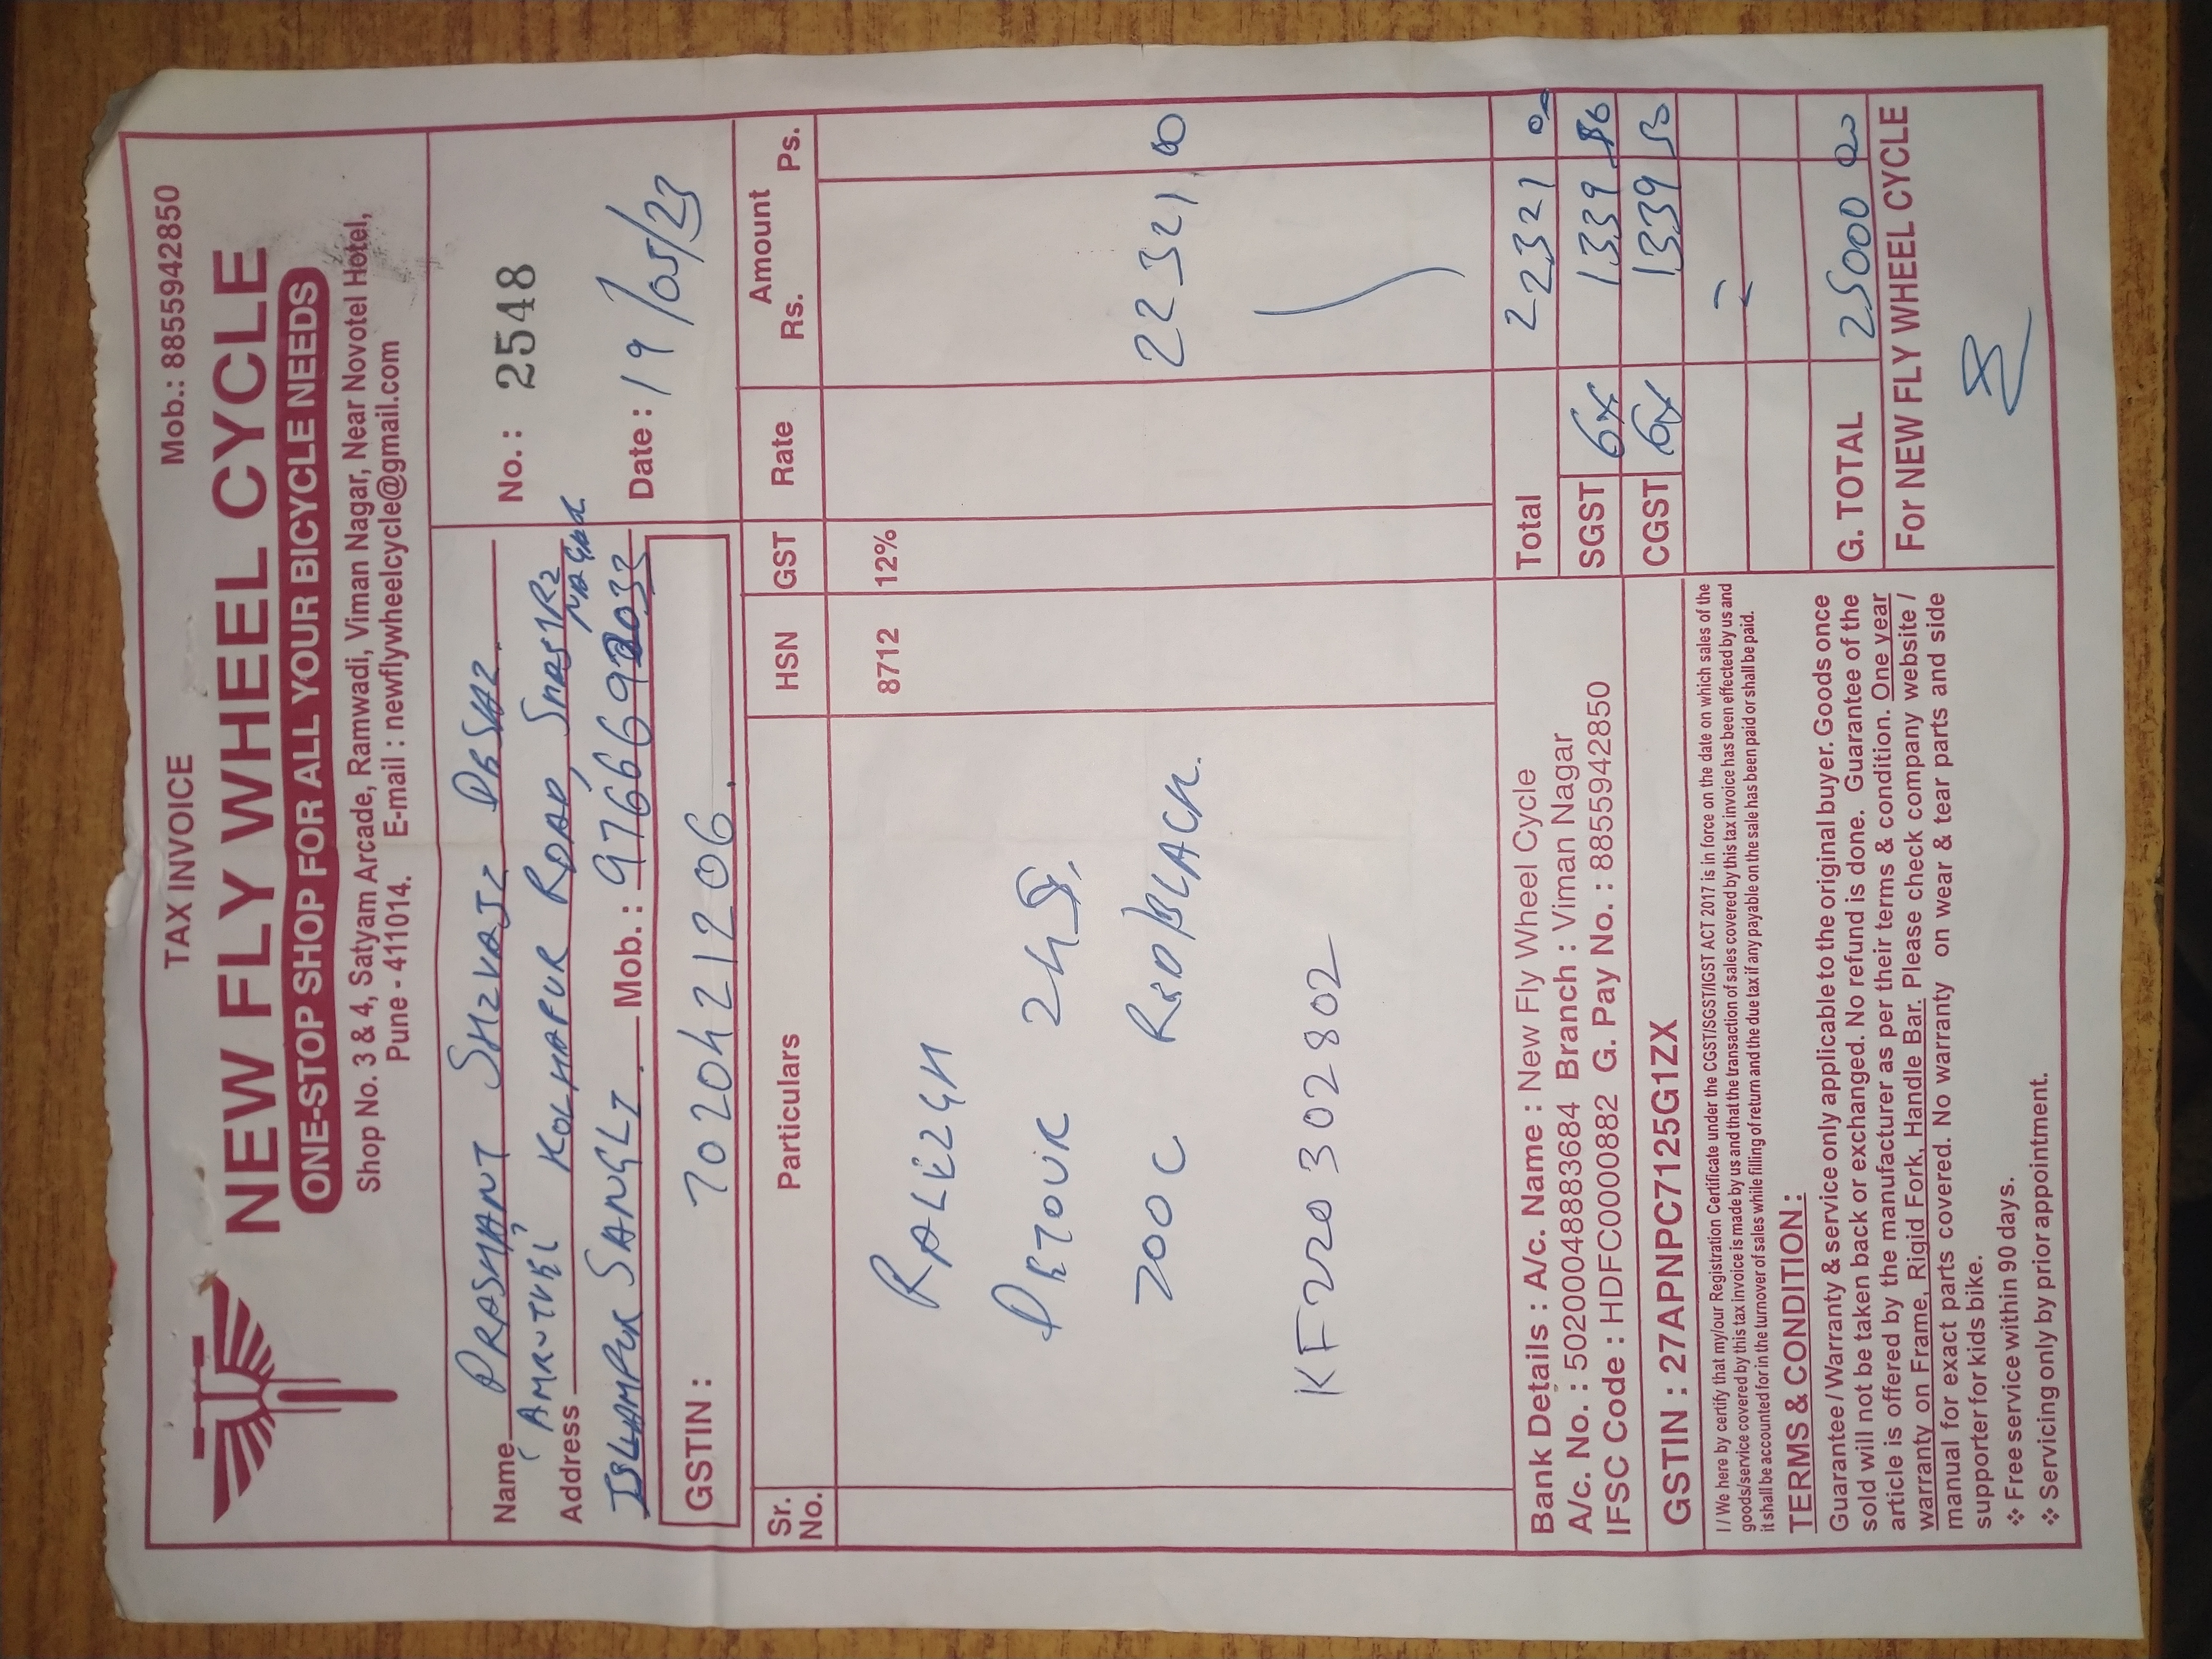 TAX INVOICE Mob.: 8855942850
NEW FLY WHEEL CYCLE
ONE-STOP SHOP FOR ALL YOUR BICYCLE NEEDS
Shop No. 3 & 4, Satyam Arcade, Ramwadi, Viman Nagar, Near Novotel Hotel,
Pune - 411014. E-mail : newflywheelcycle@gmail.com
Name PRASHANT SHIVAJI DESAI.
No. : 2548
AMRUTVEL KOLHAPUR ROAD, SHASTRI NAGAR
Address
ISLAMPUR SANGLI Mob. : 9766692033
Date : 19/05/23
GSTIN : 7020421206.
Sr. No. Particulars HSN GST Rate Amount Rs. Ps.
8712 12%
RALEIGH
DETOUR 24S,
700C RED/BLACK. 22321 00
KF220302802
Bank Details : A/c. Name : New Fly Wheel Cycle
A/c. No. : 50200048883684 Branch : Viman Nagar
IFSC Code : HDFC0000882 G. Pay No. : 8855942850
GSTIN : 27APNPC7125G1ZX
Total 22321 0
SGST 6% 1339
CGST 6% 1339 50
G. TOTAL 25000 00
I / We here by certify that my/our Registration Certificate under the CGST/SGST/IGST ACT 2017 is in force on the date on which sales of the
goods/service covered by this tax invoice is made by us and that the transaction of sales covered by this tax invoice has been effected by us and
it shall be accounted for in the turnover of sales while filling of return and the due tax if any payable on the sale has been paid or shall be paid.
TERMS & CONDITION :
Guarantee / Warranty & service only applicable to the original buyer. Goods once
sold will not be taken back or exchanged. No refund is done. Guarantee of the
article is offered by the manufacturer as per their terms & condition. One year
warranty on Frame, Rigid Fork, Handle Bar. Please check company website /
manual for exact parts covered. No warranty on wear & tear parts and side
supporter for kids bike.
❖ Free service within 90 days.
❖ Servicing only by prior appointment.
For NEW FLY WHEEL CYCLE